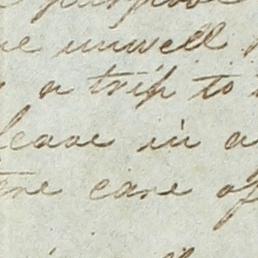 purpose
unwell
a trip to
leave in a
care of